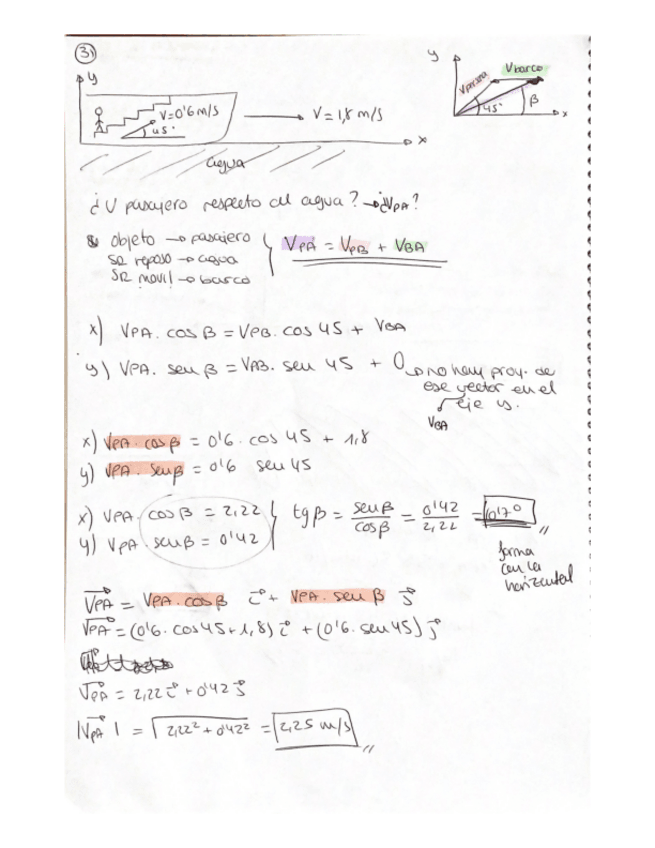 3)
y
V=0'6 m/s
45°
V = 1,8 m/s
x
agua
y
Vpersona
Vbarco
45°
β
x
¿V pasajero respecto del agua? → ¿VPA?
objeto → pasajero
SR reposo → agua
SR movil → barco
VPA = VPB + VBA
x) VPA. cos β = VPB. cos 45 + VBA
y) VPA. seu β = VAB. seu 45 + 0 → no hay proy. de
ese vector en el
eje y.
VBA
x) VPA. cos β = 0'6. cos 45 + 1,8
y) VPA. seu β = 0'6 seu 45
x) VPA. cos β = 2,22
y) VPA. seu β = 0'42
tg β = seu β / cos β = 0'42 / 2,22 =
forma
con la
horizontal
VPA = VPA. cos β i + VPA. seu β j
VPA = (0'6. cos 45 + 1,8) i + (0'6. seu 45) j
VPA = 2,22 i + 0'42 j
|VPA| = √2,22² + 0'42² = 2,25 m/s